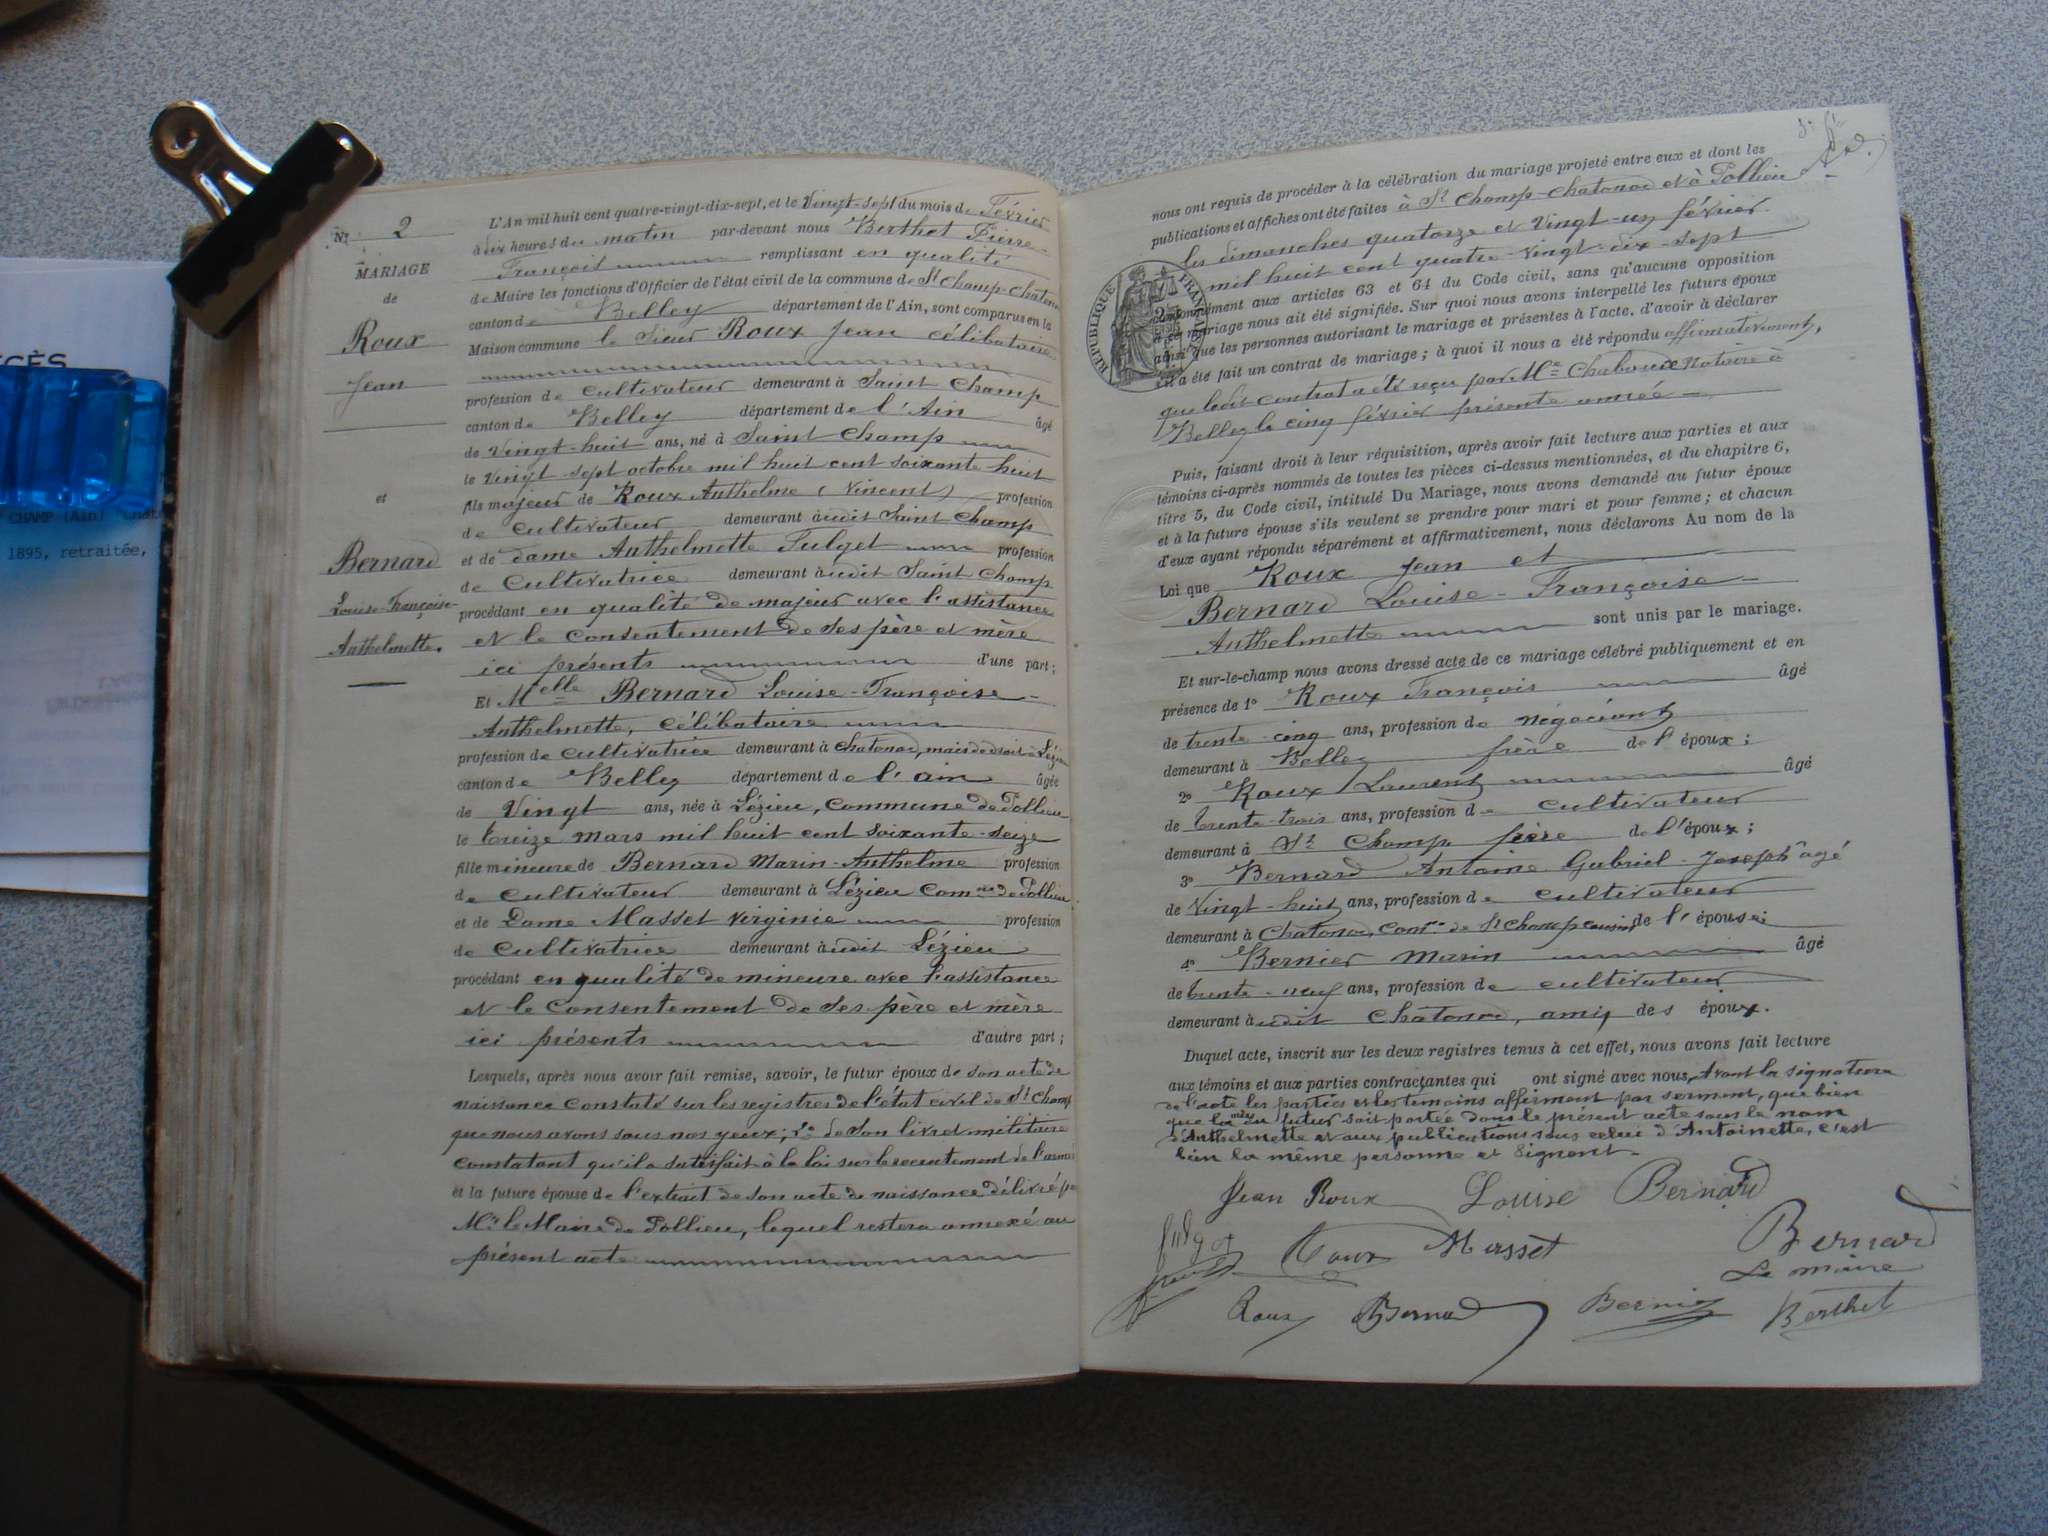 N° 2
MARIAGE
de
Roux
Jean
et
Bernard
Louise-Françoise-
Anthelmette.
L'An mil huit cent quatre-vingt-dix-sept, et le Vingt-sept du mois de Février
à dix heures du matin par-devant nous Berthet Pierre
François remplissant en qualité
de Maire les fonctions d'Officier de l'état civil de la commune de St Champ-Chaton
canton de Belley département de l'Ain, sont comparus en la
Maison commune le Sieur Roux Jean célibataire
profession de cultivateur demeurant à Saint Champ
canton de Belley département de l'Ain âgé
de Vingt-huit ans, né à Saint Champ
le Vingt sept octobre mil huit cent soixante huit
fils majeur de Roux Anthelme (Vincent) profession
de Cultivateur demeurant audit Saint Champ
et de dame Anthelmette Fulget profession
de Cultivatrice demeurant audit Saint Champ
procédant en qualité de majeur avec l'assistance
et le consentement de ses père et mère
ici présents d'une part;
Et Melle Bernard Louise-Françoise-
Anthelmette, célibataire
profession de cultivatrice demeurant à Chatonod, mais de droit à Lézieu
canton de Belley département de l'ain âgée
de Vingt ans, née à Lézieu, commune de Pollieu
le treize mars mil huit cent soixante-seize
fille mineure de Bernard Marin-Anthelme profession
de cultivateur demeurant à Lézieu Comne de Pollieu
et de Dame Masset Virginie profession
de cultivatrice demeurant audit Lézieu
procédant en qualité de mineure avec l'assistance
et le consentement de ses père et mère
ici présents d'autre part;
Lesquels, après nous avoir fait remise, savoir, le futur époux de son acte de
naissance constaté sur les registres de l'état civil de St Champ
que nous avons sous nos yeux; 2° de son livret militaire
constatant qu'il a satisfait à la loi sur le recrutement de l'armée
et la future épouse de l'extrait de son acte de naissance délivré par
Mr le Maire de Pollieu, lequel restera annexé au
présent acte
nous ont requis de procéder à la célébration du mariage projeté entre eux et dont les
publications et affiches ont été faites à St Champ-Chatonod et à Pollieu
les dimanches quatorze et vingt-un février
mil huit cent quatre-vingt-dix-sept
conformément aux articles 63 et 64 du Code civil, sans qu'aucune opposition
à ce mariage nous ait été signifiée. Sur quoi nous avons interpellé les futurs époux
ainsi que les personnes autorisant le mariage et présentes à l'acte, d'avoir à déclarer
s'il a été fait un contrat de mariage; à quoi il nous a été répondu affirmativement,
que ledit contrat a été reçu par Me Chaboud Notaire à
Belley le cinq février présente année
RÉPUBLIQUE FRANÇAISE
Puis, faisant droit à leur réquisition, après avoir fait lecture aux parties et aux
témoins ci-après nommés de toutes les pièces ci-dessus mentionnées, et du chapitre 6,
titre 5, du Code civil, intitulé Du Mariage, nous avons demandé au futur époux
et à la future épouse s'ils veulent se prendre pour mari et pour femme; et chacun
d'eux ayant répondu séparément et affirmativement, nous déclarons Au nom de la
Loi que Roux Jean et
Bernard Louise-Françoise-
Anthelmette sont unis par le mariage.
Et sur-le-champ nous avons dressé acte de ce mariage célébré publiquement et en
présence de 1° Roux François âgé
de trente-cinq ans, profession de négociant
demeurant à Belley frère de l'époux;
2° Roux Laurent âgé
de trente-trois ans, profession de cultivateur
demeurant à St Champ frère de l'époux;
3° Bernard Antoine Gabriel-Joseph âgé
de Vingt-huit ans, profession de cultivateur
demeurant à Chatonod, comne de St Champ cousin de l'épouse
4° Bernier Marin âgé
de trente-neuf ans, profession de cultivateur
demeurant audit Chatonod, ami des époux.
Duquel acte, inscrit sur les deux registres tenus à cet effet, nous avons fait lecture
aux témoins et aux parties contractantes qui ont signé avec nous. Avant la signature
de l'acte les parties et les témoins affirment par serment, que bien
que la mère du futur soit portée dans le présent acte sous le nom
d'Anthelmette et aux publications sous celui d'Antoinette, c'est
bien la même personne et signent.
Jean Roux Louise Bernard
fulget Roux Masset Bernard
Le maire
Roux Bernard Bernier Berthet
CHAMP (Ain)
1895, retraitée,